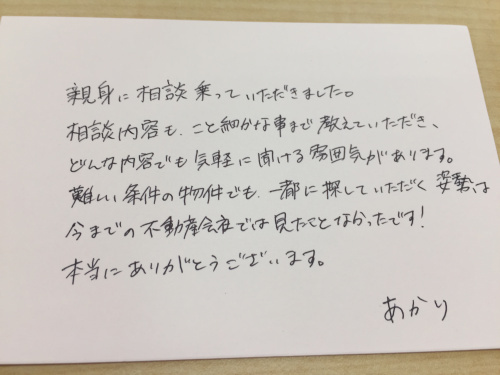 親身に相談乗っていただきました。
相談内容も、こと細かな事まで教えていただき、
どんな内容でも気軽に聞ける雰囲気があります。
難しい条件の物件でも、一都に探していただく姿勢は
今までの不動産会社では見たことなかったです!
本当にありがとうございます。
あかり